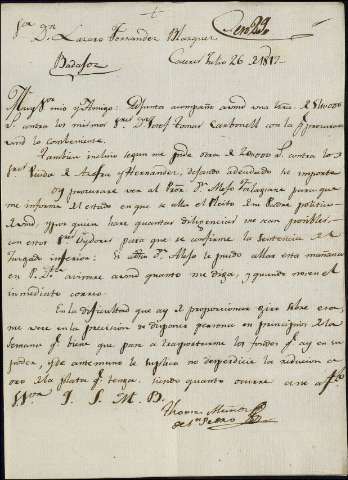 Sor Dn Lazaro Fernandez Marquez
Badajoz
Caceres Julio 26 de 1817
Muy Sor mio y Amigo: Adjunta acompaño a vmd una letra de
contra los mismos Sres Josef Tomas Carbonell con la
vmd lo conveniente.
Tambien incluio segun me pide otra de contra los
Sres Viuda de y Hernandez, dejando adeudado su importe
oy procurare ver al Dn Alefo para que
me informe del estado en que se alla el Pleito de su Padre politico
vmd, y por quien hare quantas diligencias me sean posibles
con estos Sres Oydores para que se confirme la Sentencia del
Juzgado inferior: si a dho Dn Alefo le puedo allar esta mañana
en avisare a vmd quanto me diga, y quando no en el
inmediato correo.
En la dificultad que ay de proporcionar giro sobre esa,
me veo en la precision de disponer persona en principios de la
Semana que biene que pase a trasportarme los fondos que ay en su
poder, y de antemano le suplico no desperdicie la reducion a
oro de la plata que tenga. siendo quanto ocurre a su afmo
Q. S. M. B.
Thomas Muñoz
de Sn Pedro